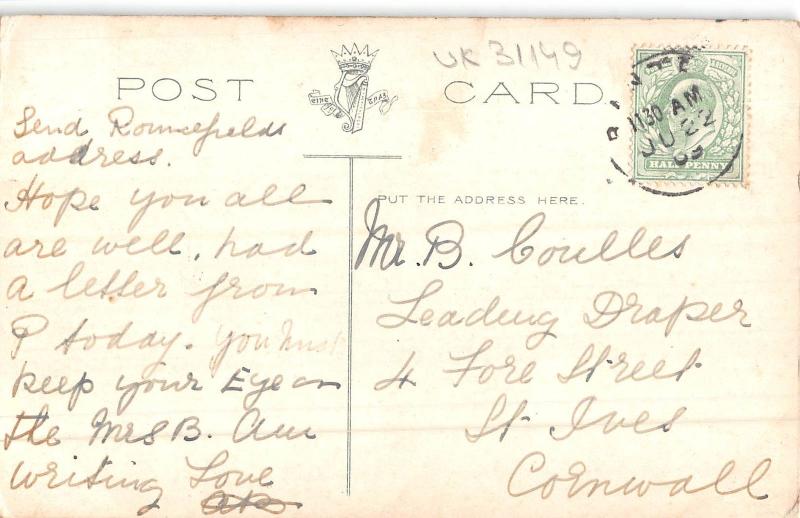 UK 31149
POST CARD
EIRE
11 30 AM
JU 22
09
HALF PENNY
Send
address.
Hope you all
are well, had
a letter from
P today. You must
keep your Eye on
the Mrs B. Am
writing Love
PUT THE ADDRESS HERE.
Mr. B. Coulles
Leading Draper
4 Fore Street
St Ives
Cornwall